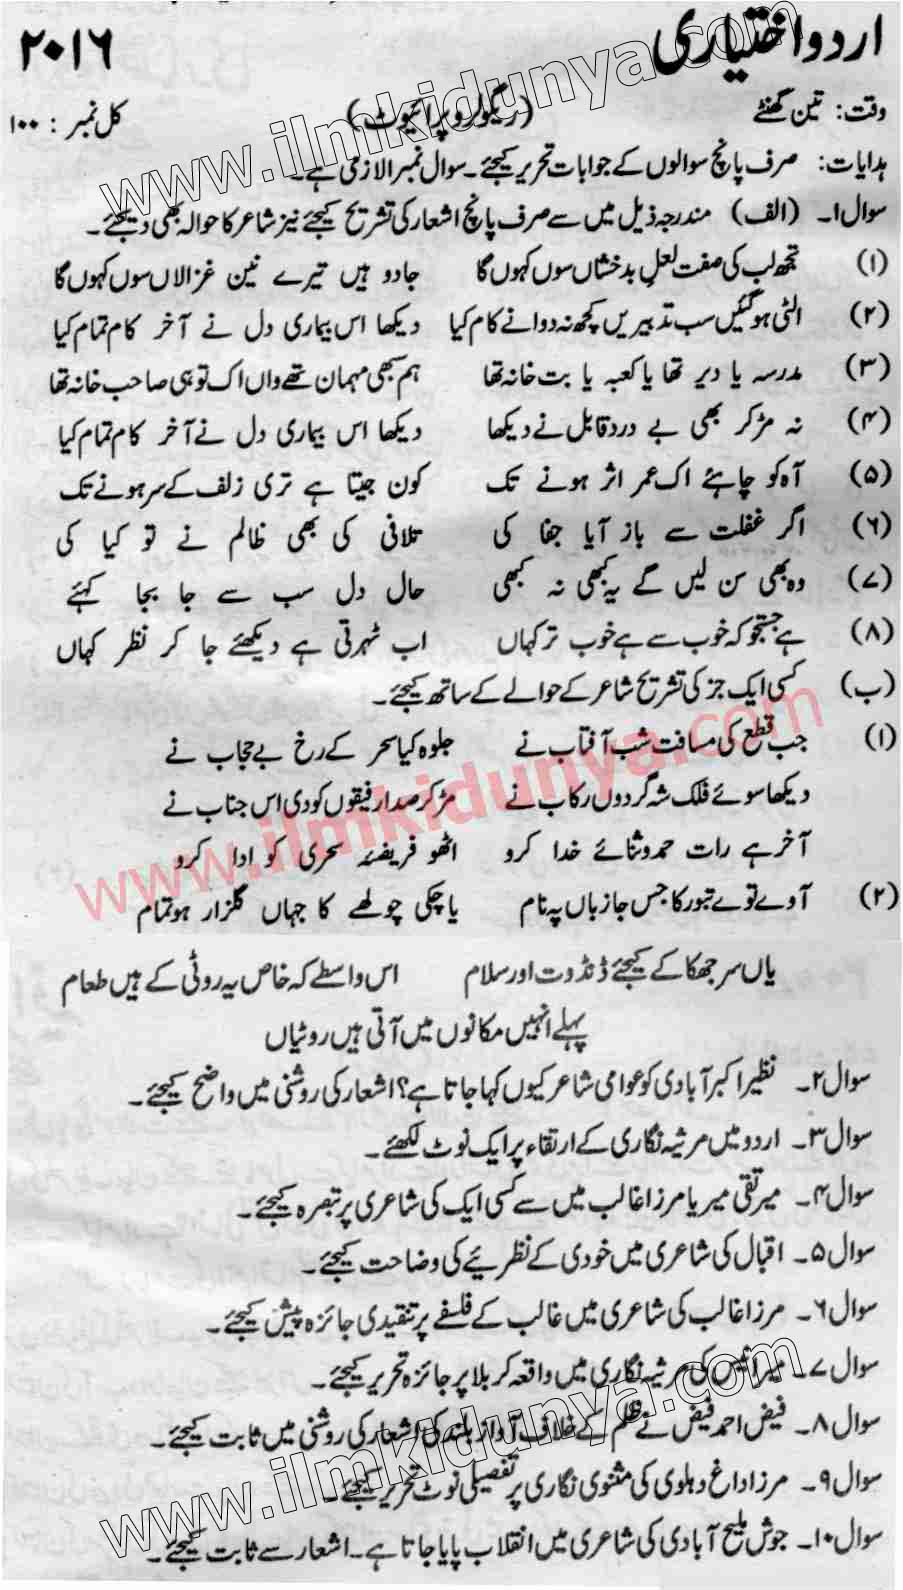 اردو اختیاری ۲۰۱۶
www.ilmkidunya.com
وقت: تین گھنٹے (ریگولر و پرائیوٹ) کل نمبر: ۱۰۰
ہدایات: صرف پانچ سوالوں کے جوابات تحریر کیجئے۔ سوال نمبر ا لازمی ہے۔
سوال ۱۔ (الف) مندرجہ ذیل میں سے صرف پانچ اشعار کی تشریح کیجئے نیز شاعر کا حوالہ بھی دیجئے۔
(۱) تجھ لب کی صفت لعلِ بدخشاں سوں کہوں گا جادو ہیں تیرے نین غزالاں سوں کہوں گا
(۲) الٹی ہوگئیں سب تدبیریں کچھ نہ دوا نے کام کیا دیکھا اس بیماری دل نے آخر کام تمام کیا
(۳) مدرسہ یا دیر تھا یا کعبہ یا بت خانہ تھا ہم سبھی مہمان تھے واں اک تو ہی صاحب خانہ تھا
(۴) نہ مڑ کر بھی بے درد قاتل نے دیکھا دیکھا اس بیماری دل نے آخر کام تمام کیا
(۵) آہ کو چاہئے اک عمر اثر ہونے تک کون جیتا ہے تری زلف کے سر ہونے تک
(۶) اگر غفلت سے باز آیا جفا کی تلافی کی بھی ظالم نے تو کیا کی
(۷) وہ بھی سن لیں گے یہ کبھی نہ کبھی حال دل سب سے جا بجا کہئے
(۸) ہے جستجو کہ خوب سے ہے خوب تر کہاں اب ٹہرتی ہے دیکھئے جا کر نظر کہاں
(ب) کسی ایک جز کی تشریح شاعر کے حوالے کے ساتھ کیجئے۔
(۱) جب قطع کی مسافت شب آفتاب نے جلوہ کیا سحر کے رخ بے حجاب نے
دیکھا سوئے فلک شہ گردوں رکاب نے مڑ کر صدا رفیقوں کو دی اس جناب نے
آخر ہے رات حمد و ثنائے خدا کرو اٹھو فریضۂ سحری کو ادا کرو
www.ilmkidunya.com
(۲) آوے توے تنور کا جس جا زباں پہ نام یا چکی چولھے کا جہاں گلزار ہو تمام
یاں سر جھکا کے کیجئے ڈنڈوت اور سلام اس واسطے کہ خاص یہ روٹی کے ہیں طعام
پہلے انہیں مکانوں میں آتی ہیں روٹیاں
سوال ۲۔ نظیر اکبر آبادی کو عوامی شاعر کیوں کہا جاتا ہے؟ اشعار کی روشنی میں واضح کیجئے۔
سوال ۳۔ اردو میں مرثیہ نگاری کے ارتقاء پر ایک نوٹ لکھئے۔
سوال ۴۔ میر تقی میر یا مرزا غالب میں سے کسی ایک کی شاعری پر تبصرہ کیجئے۔
سوال ۵۔ اقبال کی شاعری میں خودی کے نظریئے کی وضاحت کیجئے۔
سوال ۶۔ مرزا غالب کی شاعری میں غالب کے فلسفے پر تنقیدی جائزہ پیش کیجئے۔
سوال ۷۔ میر انیس کی مرثیہ نگاری میں واقعہ کربلا پر جائزہ تحریر کیجئے۔
سوال ۸۔ فیض احمد فیض نے ظلم کے خلاف آواز بلند کی اشعار کی روشنی میں ثابت کیجئے۔
سوال ۹۔ مرزا داغ دہلوی کی مثنوی نگاری پر تفصیلی نوٹ تحریر کیجئے۔
سوال ۱۰۔ جوش ملیح آبادی کی شاعری میں انقلاب پایا جاتا ہے۔ اشعار سے ثابت کیجئے۔
www.ilmkidunya.com